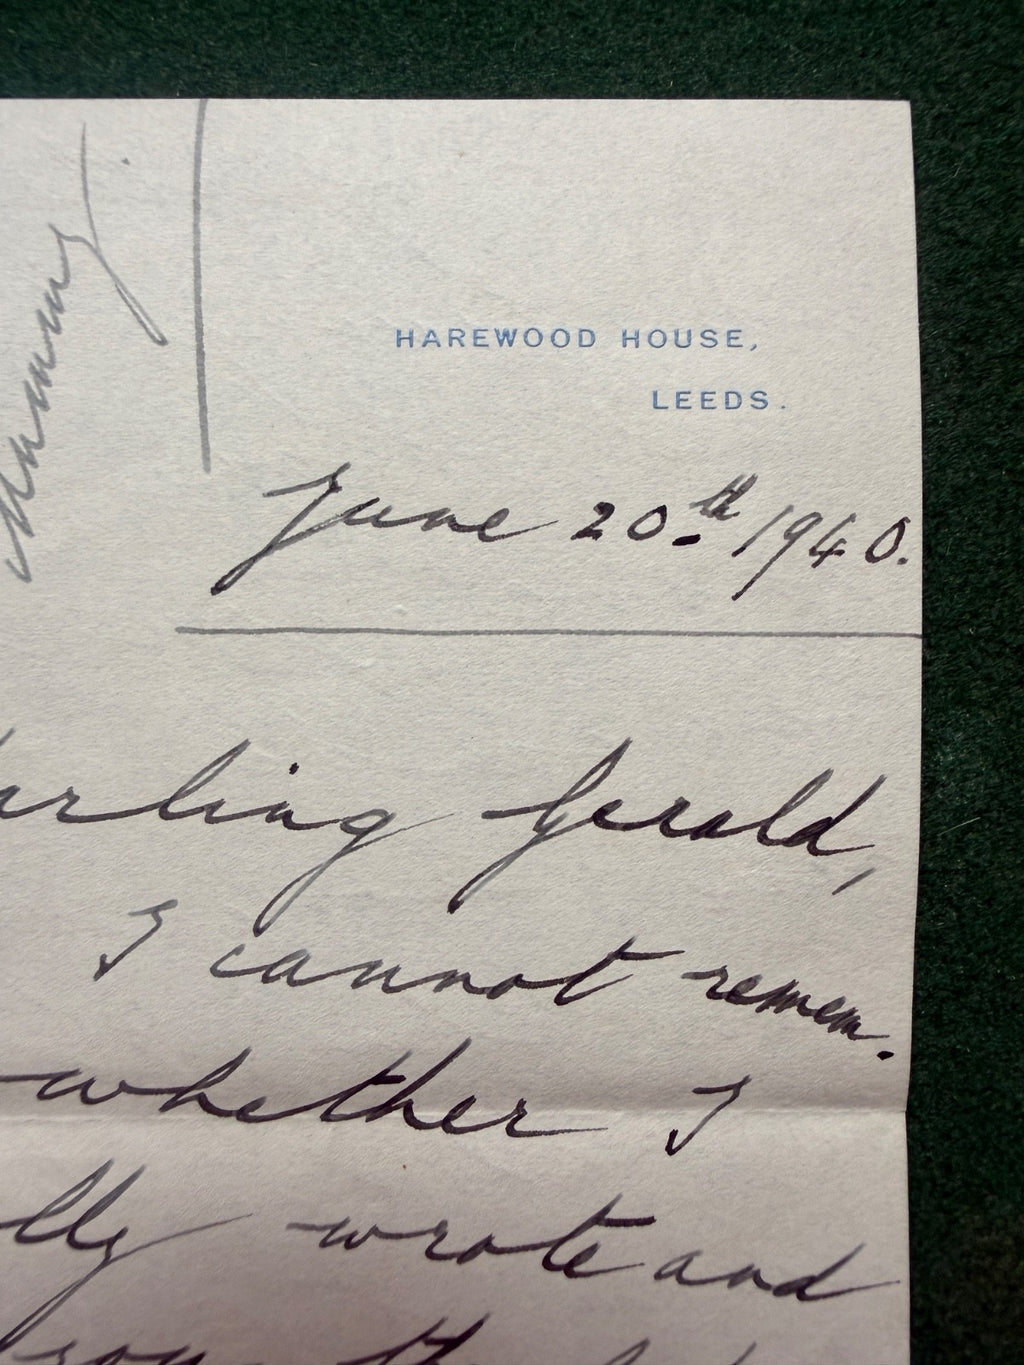 Mummy
HAREWOOD HOUSE,
LEEDS.
June 20.th 1940.
arling Gerald,
I cannot remem.
whether I
lly wrote and